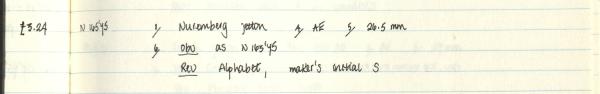 £3.24 N 165'45 1, Nuremberg jetton 4, AE 5, 26.5 mm
6, obv as N 165'45
Rev Alphabet, maker's initial S